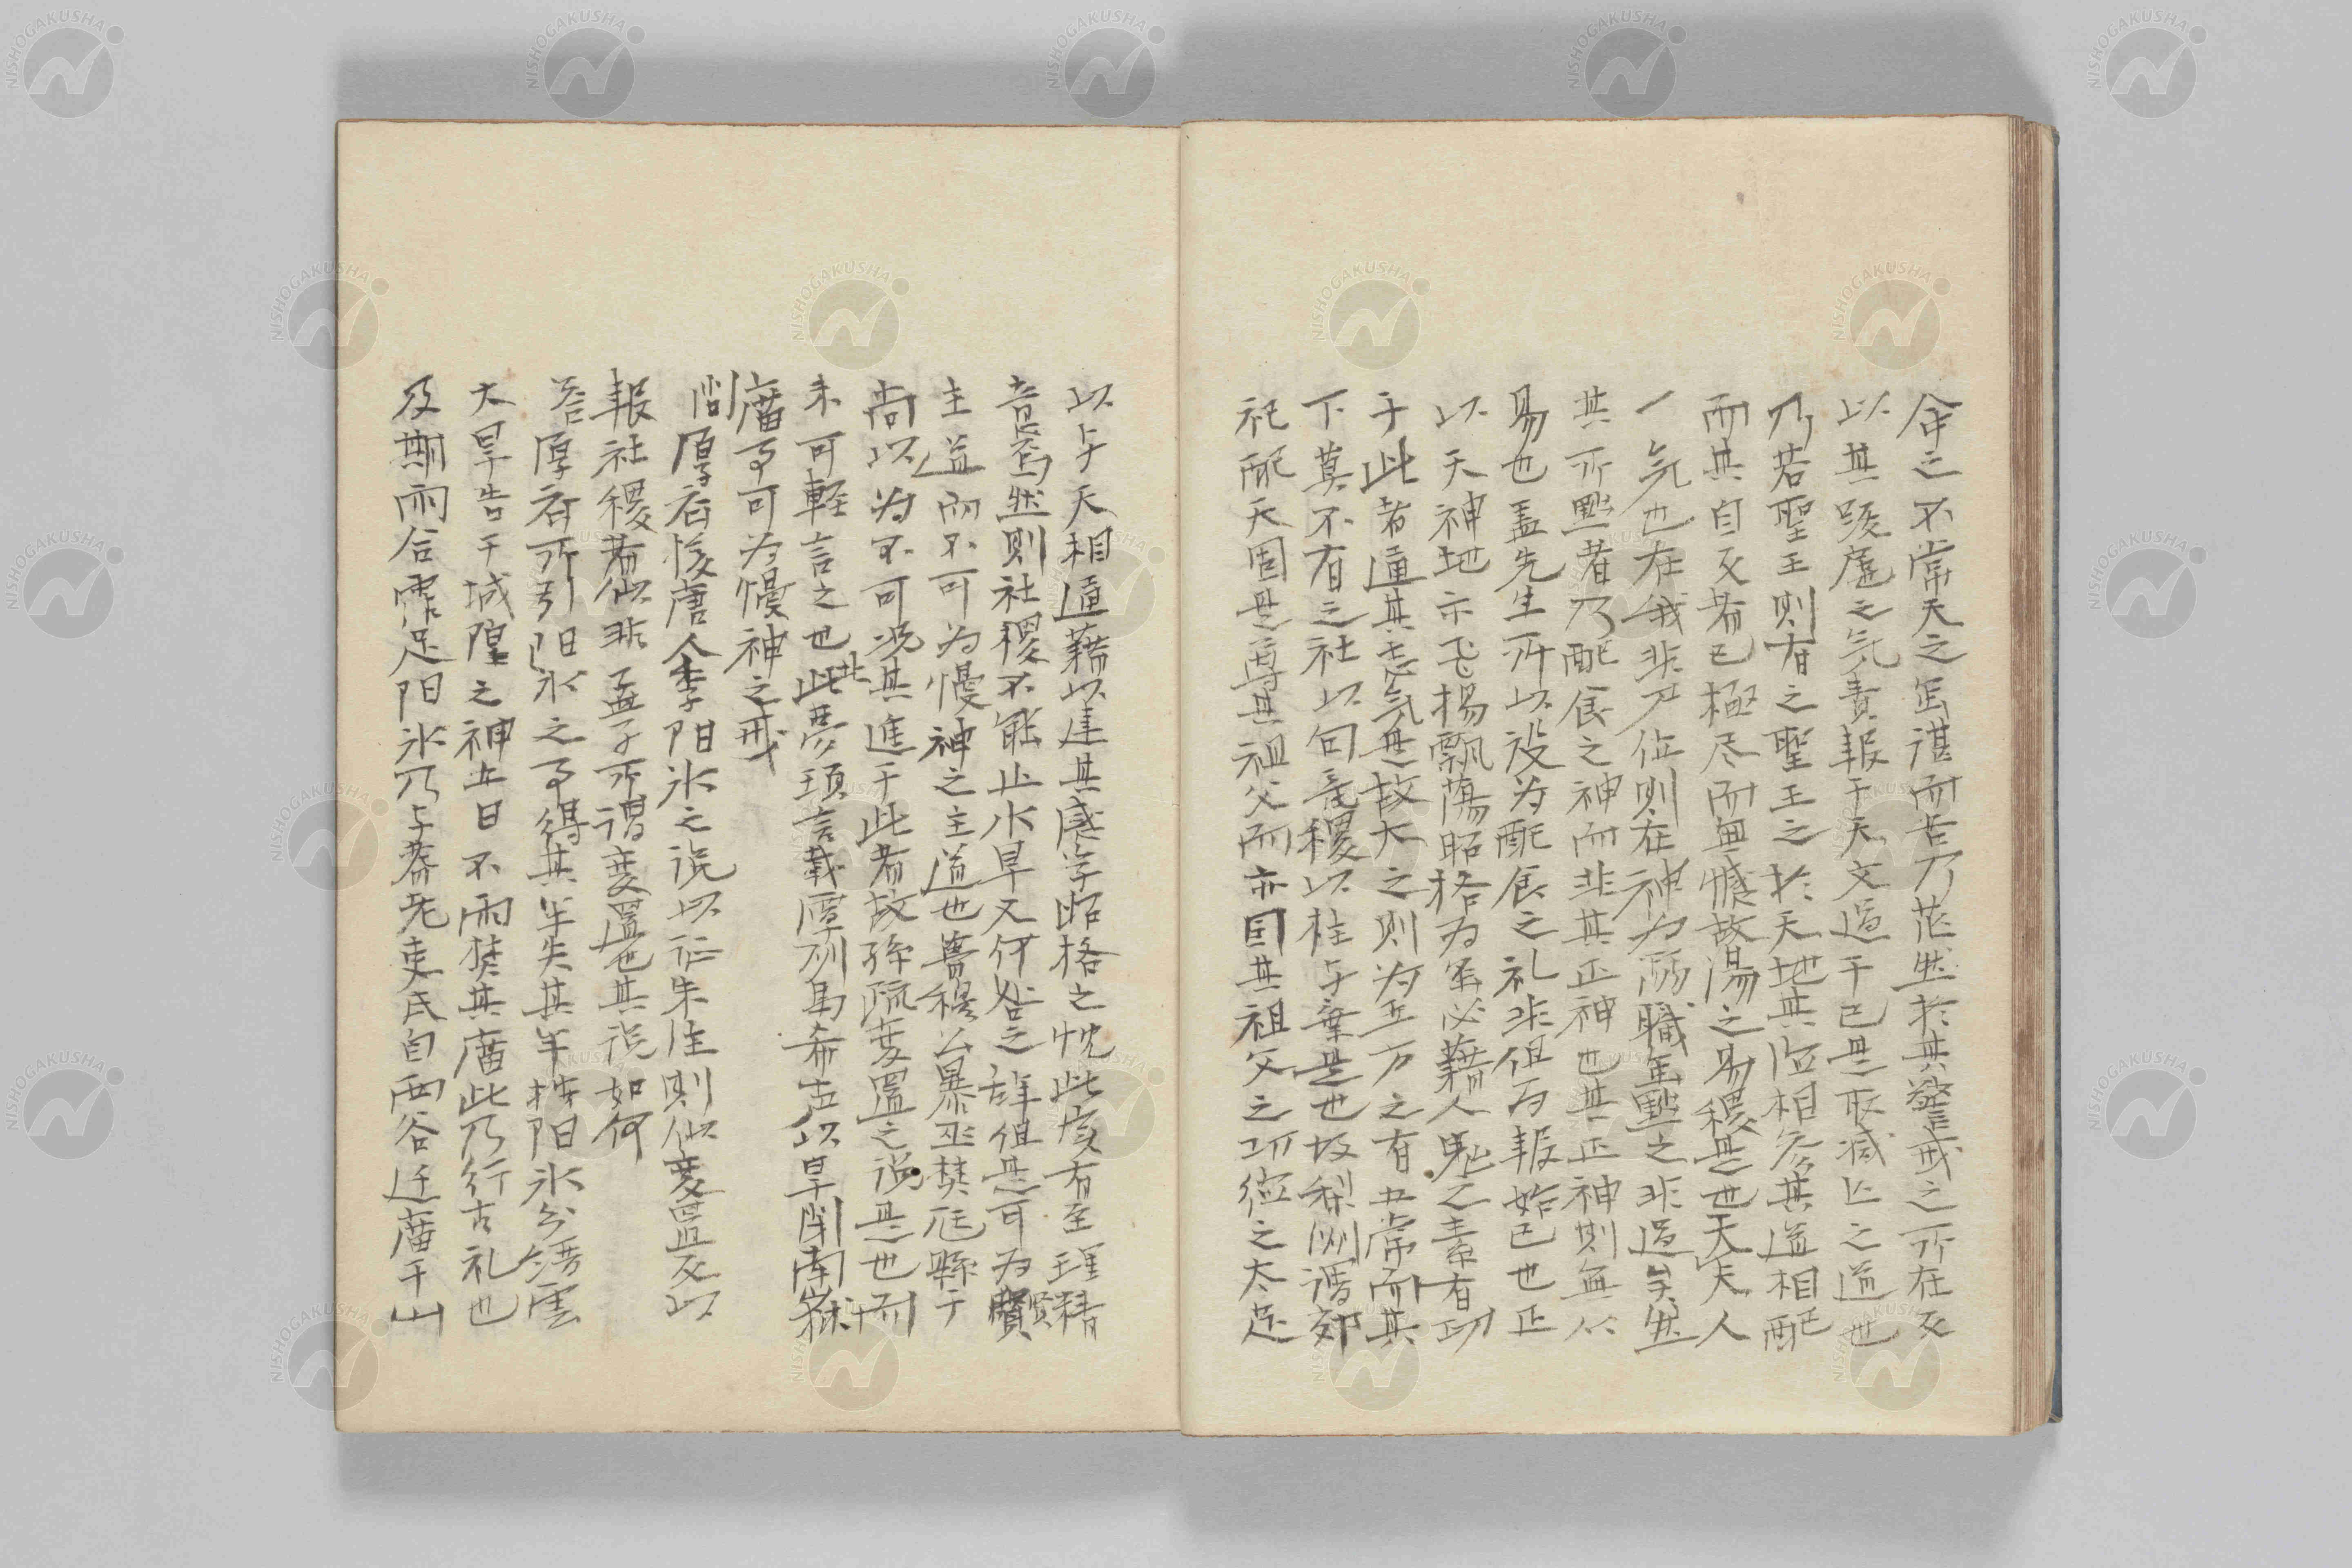 命之不常天之匪諶而苦乃茫然於其警戒之所在又
以其殘虐之気責報于天文過于己是取滅亡之道也
乃若聖王則有之聖王之於天地其位相参其道相配
而其自反者已極尽而無憾故湯之易稷是也夫天人
一気也在我非尸位則在神為曠職黜之非過矣然
其所黜者乃配食之神而非其正神也其正神則無以
易也蓋先生所以設為配食之礼非但為報始已也正
以天神地示飛揚飄蕩昭格為必藉人鬼之素有功
于此者通其志気是故大之則為五方之有五常而其
下莫不有之社以句竜稷以柱与棄是也故梨洲謂郊
祀配天固是尊其祖父而亦因其祖父之功徳之大足
以与天相通藉以達其感孚昭格之忱此実有至理精
意焉然則社稷不能止水旱又何咎之辞但是可為賢
主道而不可為慢神之主道也魯穆公暴巫焚尫縣子
尚以為不可況其進于此者故孫疏変置之説是也而
未可軽言之也此夢瑣言載潭州馬希声以旱閉南嶽
廟事可為慢神之戒
問厚斎援唐人李陽氷之説以証朱注則似変置又以
報社稷者似非孟子所謂変置也其説如何
答厚斎所引陽氷之事得其半失其半按陽氷令縉雲
大旱告于城隍之神五日不雨焚其廟此乃行古礼也
及期雨合霈足陽氷乃与耆老吏民自西谷迁廟于山
NISHOGAKUSHA